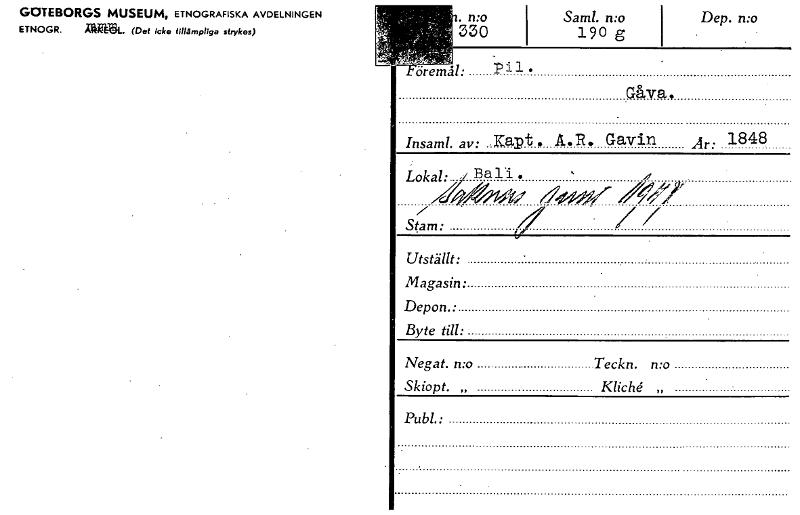 GÖTEBORGS MUSEUM, ETNOGRAFISKA AVDELNINGEN
ETNOGR. ARKEOL. (Det icke tillämpliga strykes)
n. n:o Saml. n:o Dep. n:o
330 190 g
Föremål: Pil.
Gåva.
Insaml. av: Kapt. A.R. Gavin År: 1848
Lokal: Bali.
Saknas juni
Stam:
Utställt:
Magasin:
Depon.:
Byte till:
Negat. n:o Teckn. n:o
Skiopt. „ Kliché „
Publ.: